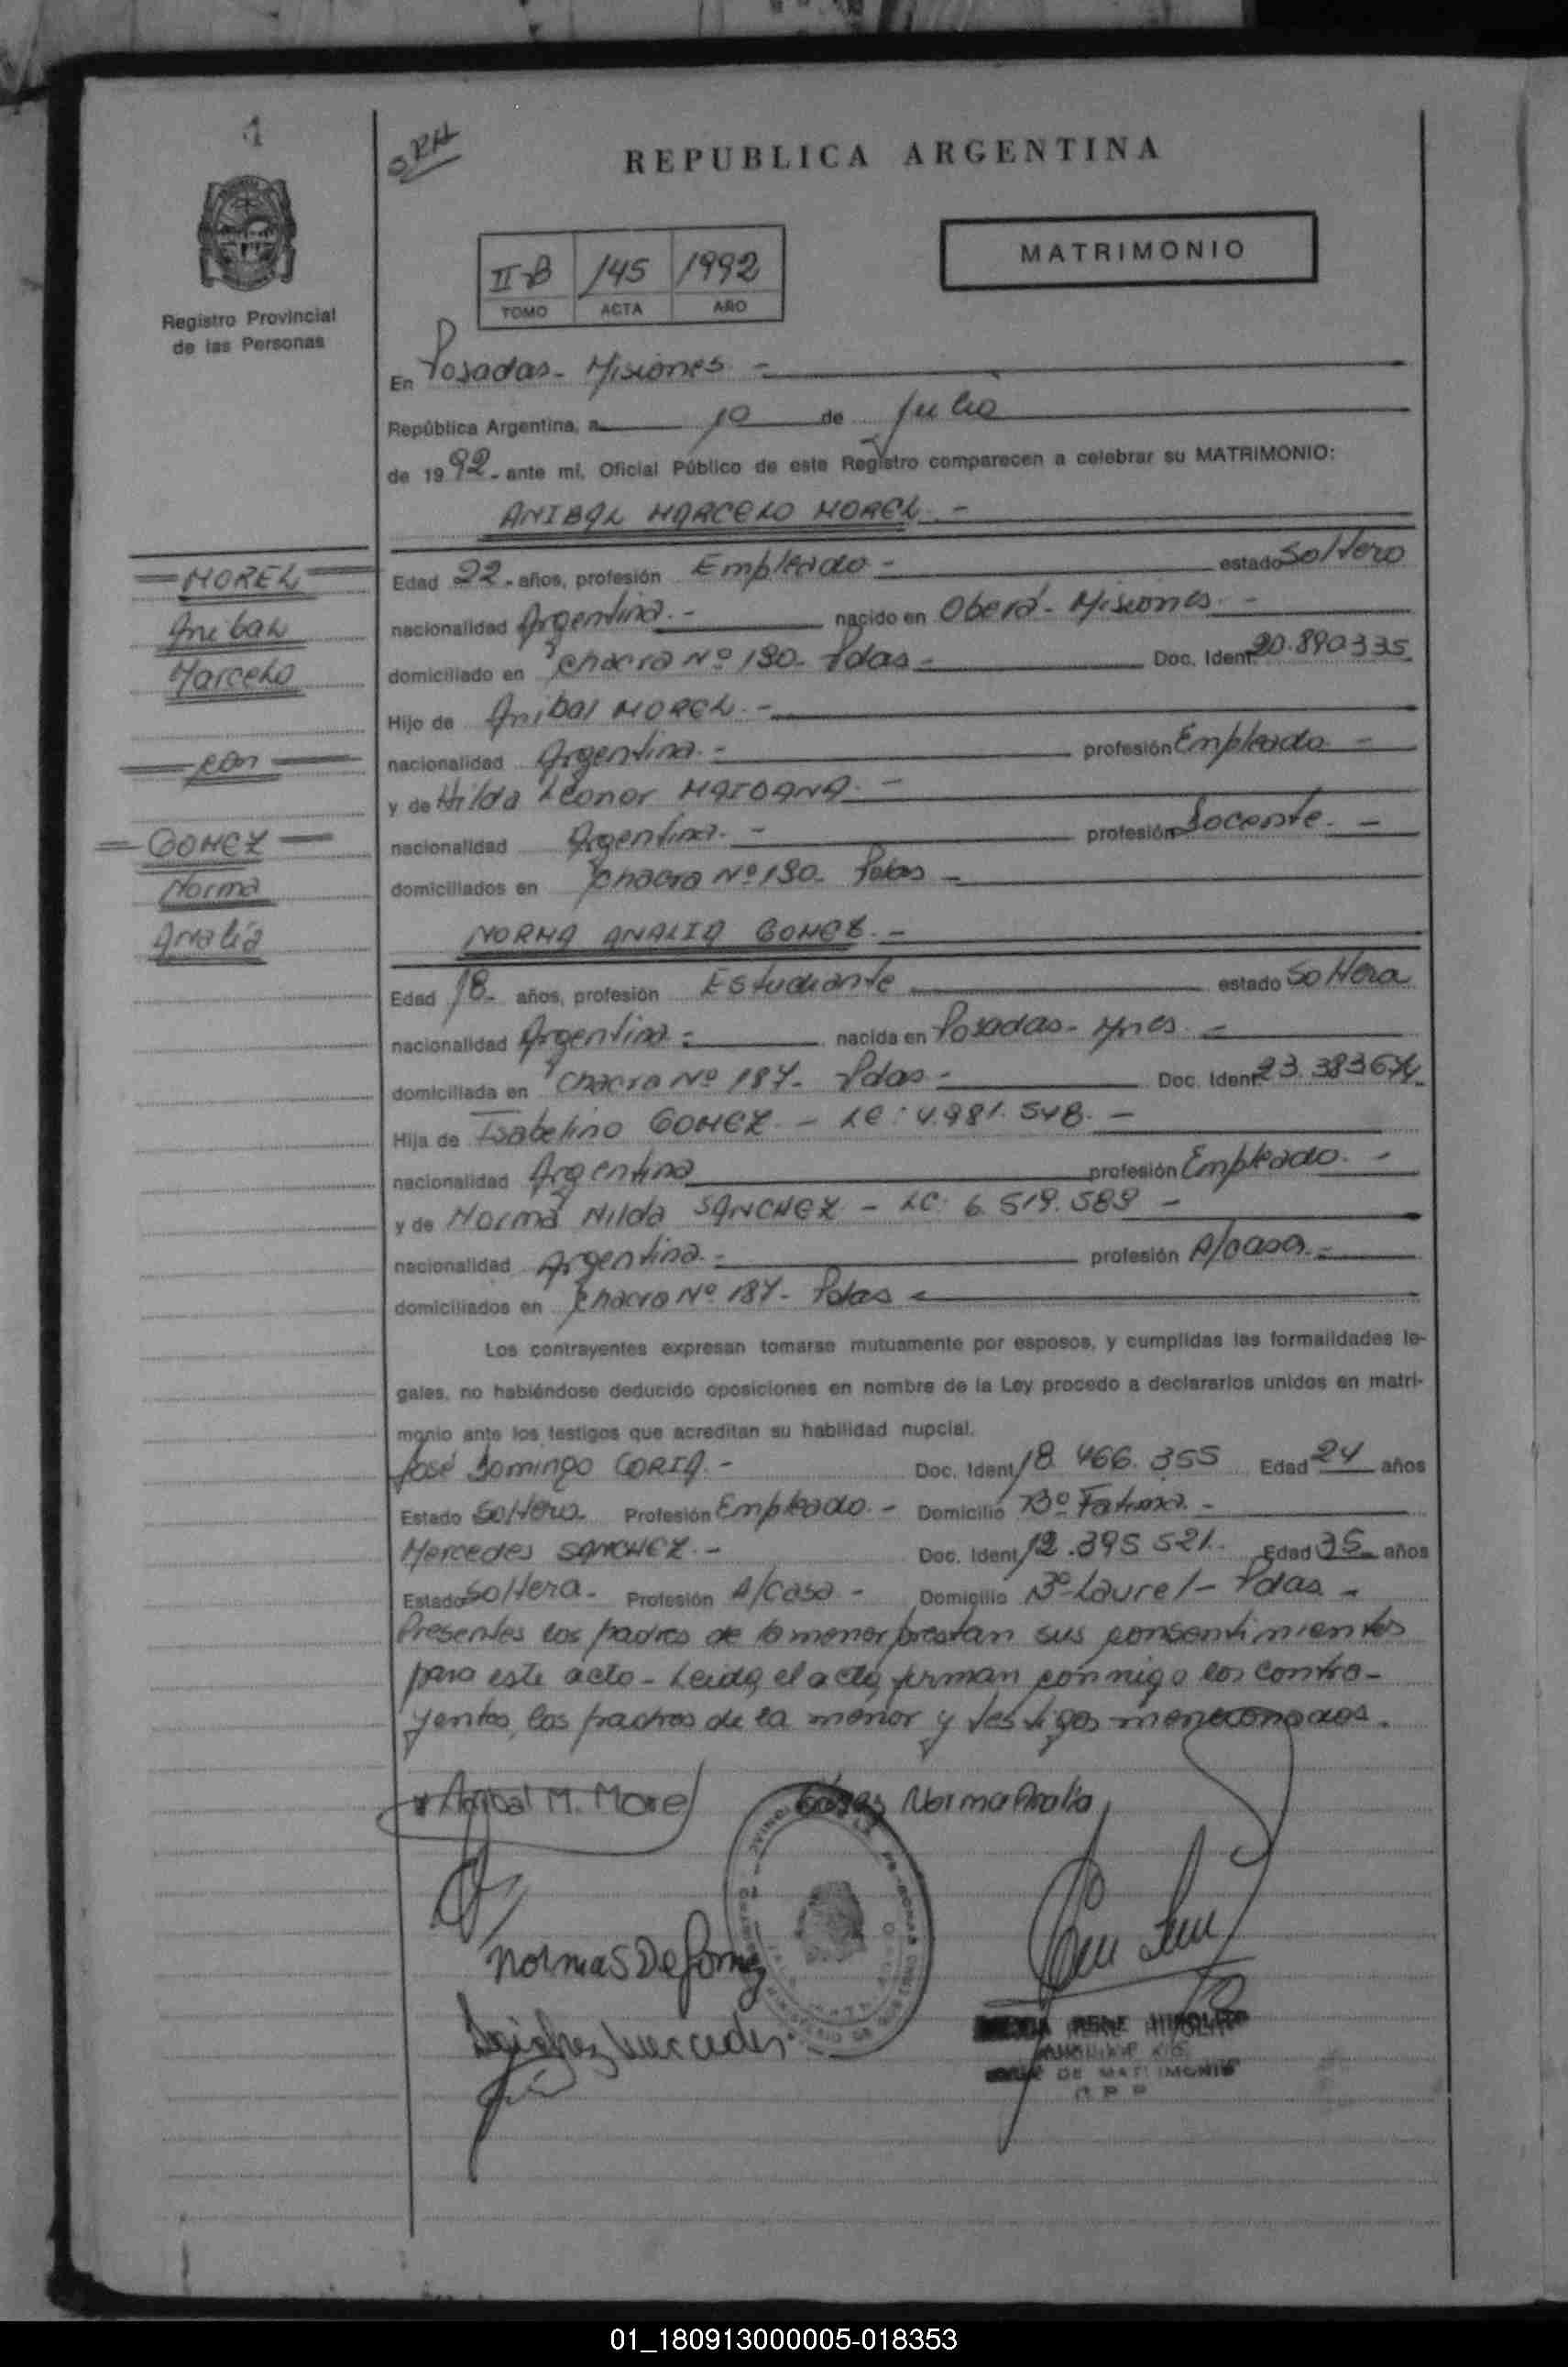 1
SRH
REPUBLICA ARGENTINA
MATRIMONIO
II-B 145 1992
TOMO ACTA AÑO
Registro Provincial
de las Personas
En Posadas - Misiones -
República Argentina, a 10 de Julio
de 1992 - ante mí, Oficial Público de este Registro comparecen a celebrar su MATRIMONIO:
ANIBAL MARCELO MOREL. -
MOREL
Anibal
Marcelo
con
GOMEZ
Norma
Analía
Edad 22 - años, profesión Empleado - estado Soltero
nacionalidad Argentina. - nacido en Oberá - Misiones. -
domiciliado en Chacra Nº 130 - Pdas - Doc. Ident. 20.890335
Hijo de Anibal MOREL. -
nacionalidad Argentina. - profesión Empleado -
y de Hilda Leonor MAIDANA. -
nacionalidad Argentina. - profesión Docente. -
domiciliados en Chacra Nº 130 - Pdas -
NORMA ANALIA GOMEZ. -
Edad 18 - años, profesión Estudiante estado Soltera
nacionalidad Argentina - nacida en Posadas - Mnes -
domiciliada en Chacra Nº 187 - Pdas - Doc. Ident. 23.383674
Hija de Isabelino GOMEZ - LE: 4.981.548. -
nacionalidad Argentina profesión Empleado. -
y de Norma Nilda SANCHEZ - LC: 6.519.589 -
nacionalidad Argentina. - profesión A/casa. -
domiciliados en Chacra Nº 187 - Pdas -
Los contrayentes expresan tomarse mutuamente por esposos, y cumplidas las formalidades le-
gales, no habiéndose deducido oposiciones en nombre de la Ley procedo a declararlos unidos en matri-
monio ante los testigos que acreditan su habilidad nupcial.
José Domingo CORIA. - Doc. Ident. 18.466.355 Edad 24 años
Estado Soltero Profesión Empleado. - Domicilio Bº Fatima. -
Mercedes SANCHEZ. - Doc. Ident. 12.395.521. Edad 35 años
Estado Soltera - Profesión A/casa - Domicilio Bº Laurel - Pdas -
Presentes los padres de la menor prestan sus consentimientos
para este acto - Leída el acta, firman conmigo los contra-
yentes, los padres de la menor y testigos mencionados.
Anibal M. Morel
Gomez Norma Analia
Norma S De Gomez
Sanchez Mercedes
RENE HIPOLITO
DE MATRIMONIO
01_180913000005-018353